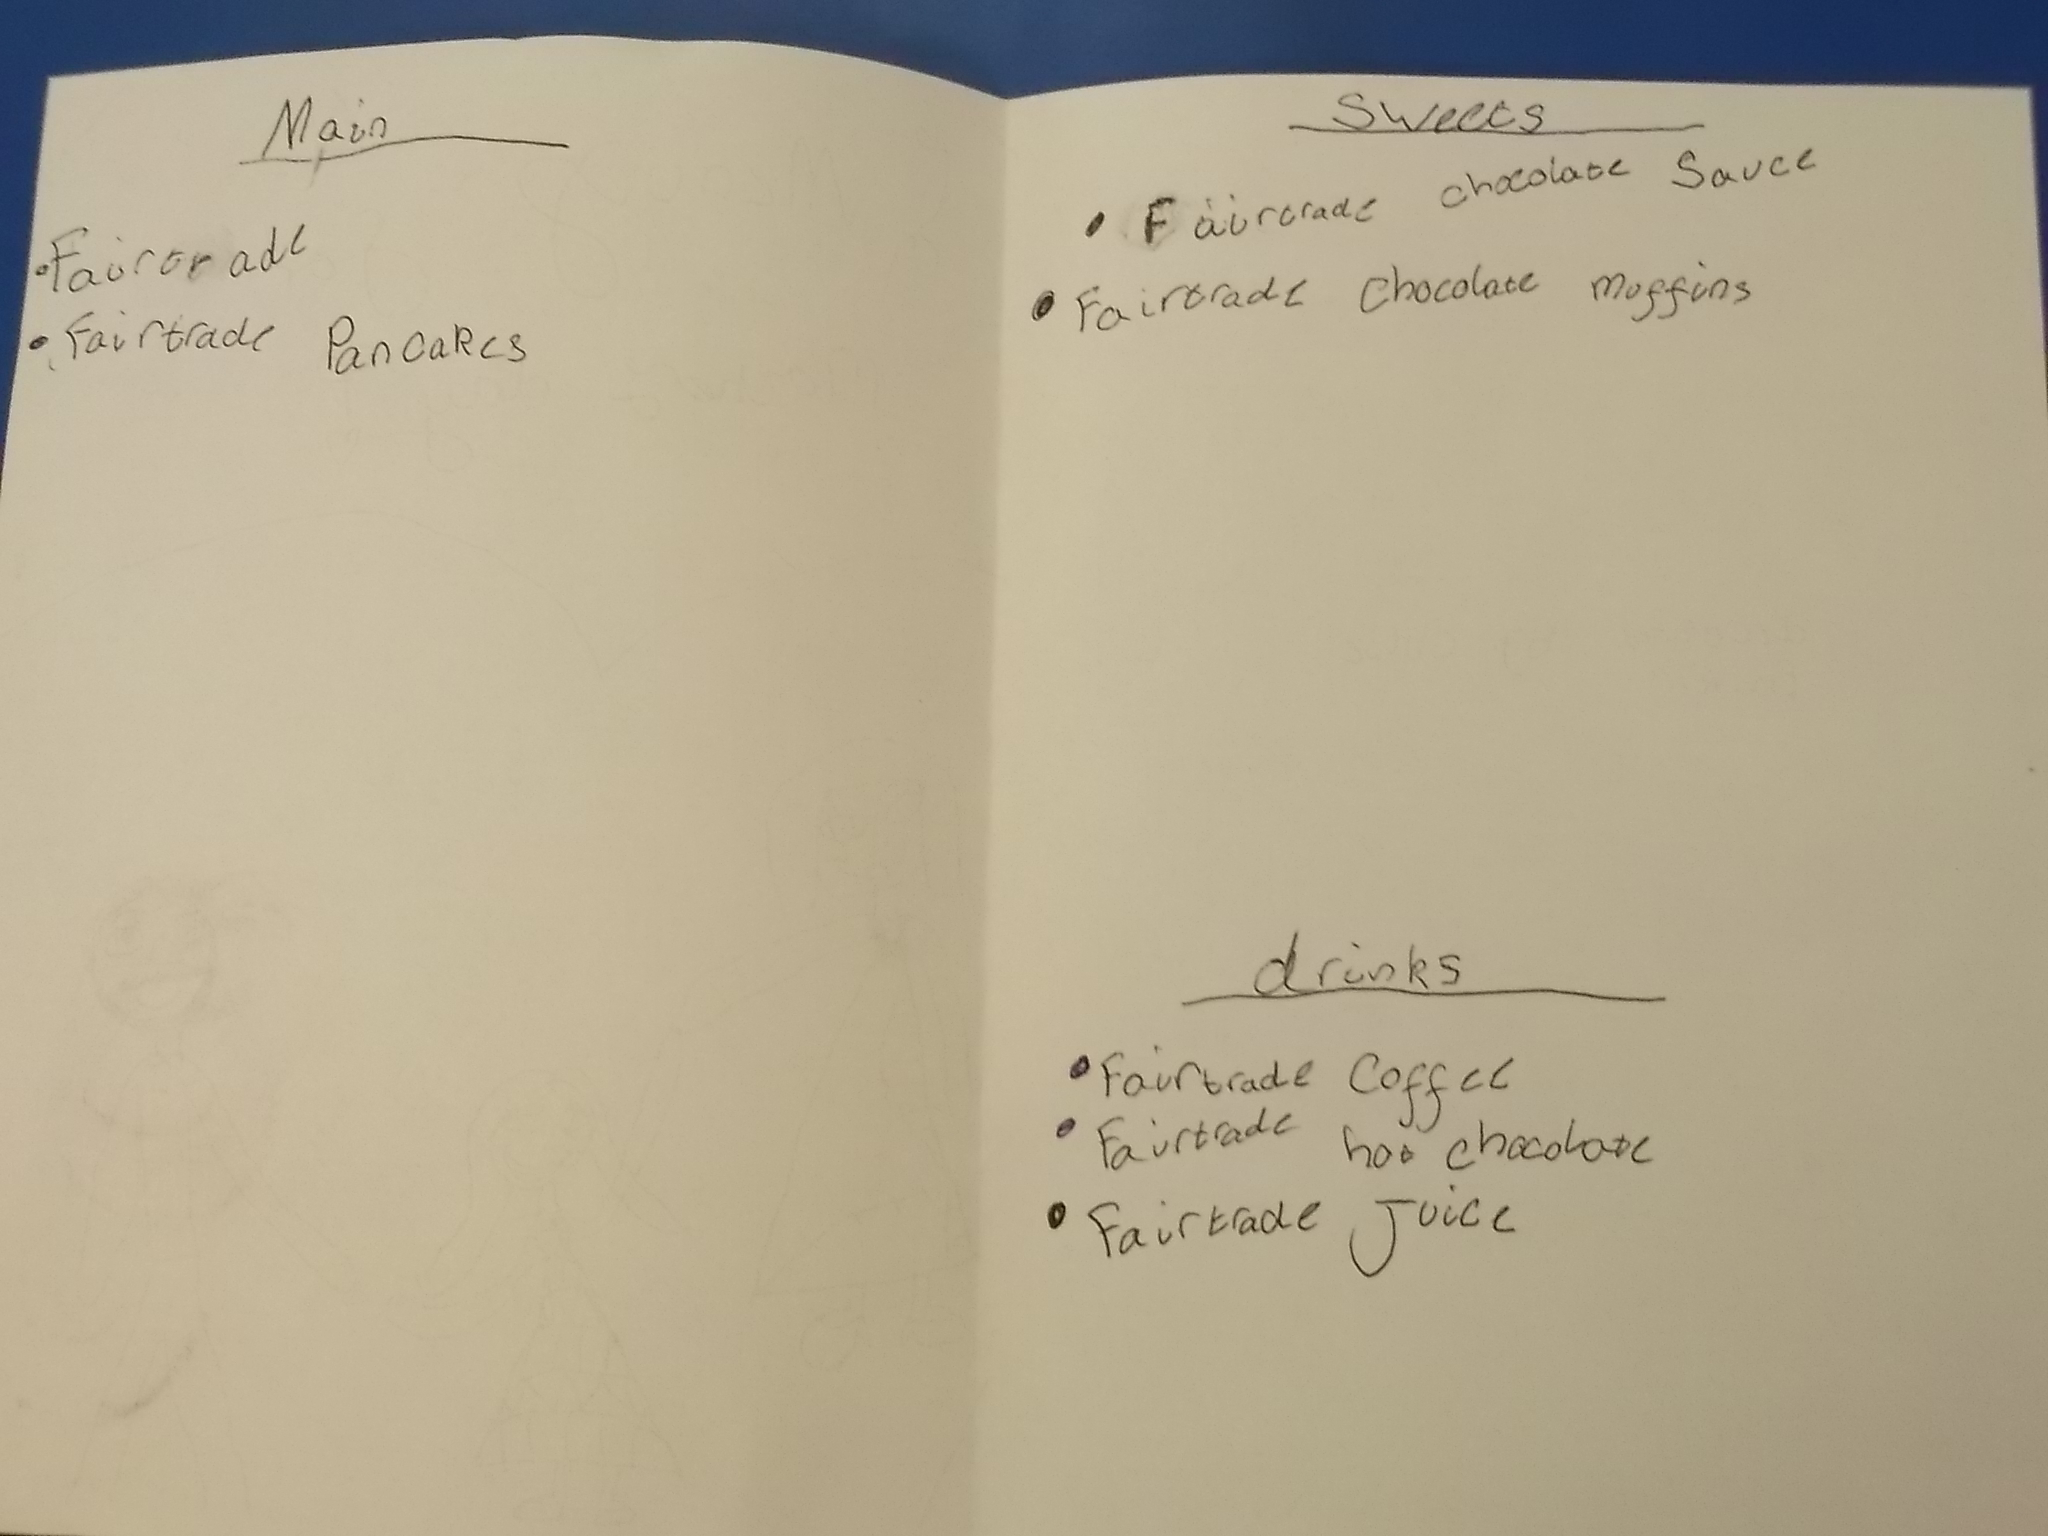 Main
• Fairtrade
• Fairtrade Pancakes
Sweets
• Fairtrade chocolate Sauce
• Fairtrade Chocolate muffins
drinks
• Fairtrade Coffee
• Fairtrade hot chocolate
• Fairtrade Juice